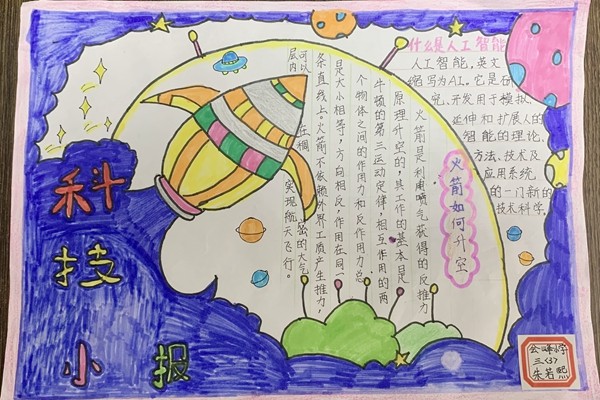 科技
小报
什么是人工智能
人工智能，英文
缩写为AI。它是研
究、开发用于模拟、
延伸和扩展人的
智能的理论、
方法、技术及
应用系统
的一门新的
技术科学。
火箭如何升空
火箭是利用喷气获得的反推力
原理升空的，其工作的基本是
牛顿的第三运动定律，相互作用的两
个物体之间的作用力和反作用力总
是大小相等，方向相反，作用在同一
条直线上。火箭不依赖外界工质产生推力，
可以在稠密的大气
层内实现航天飞行。
小学
三(3)
朱若熙